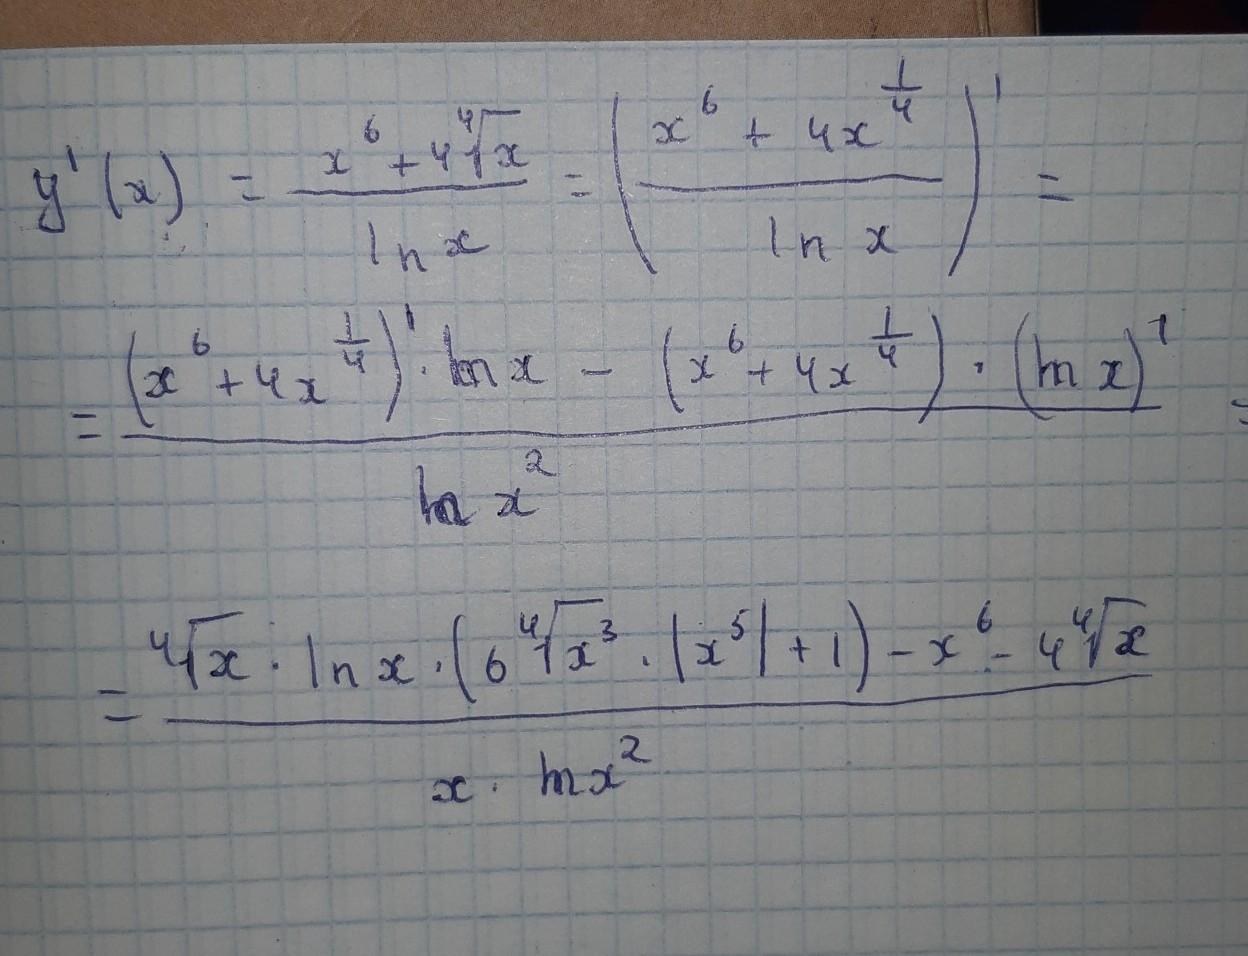 y'(x) = (x^6 + 4∜x)/(ln x) = ((x^6 + 4x^(1/4))/(ln x))' =
= ((x^6 + 4x^(1/4))' · ln x − (x^6 + 4x^(1/4)) · (ln x)')/(ln x^2) =
= (∜x · ln x · (6∜x^3 · |x^5| + 1) − x^6 − 4∜x)/(x · ln x^2)